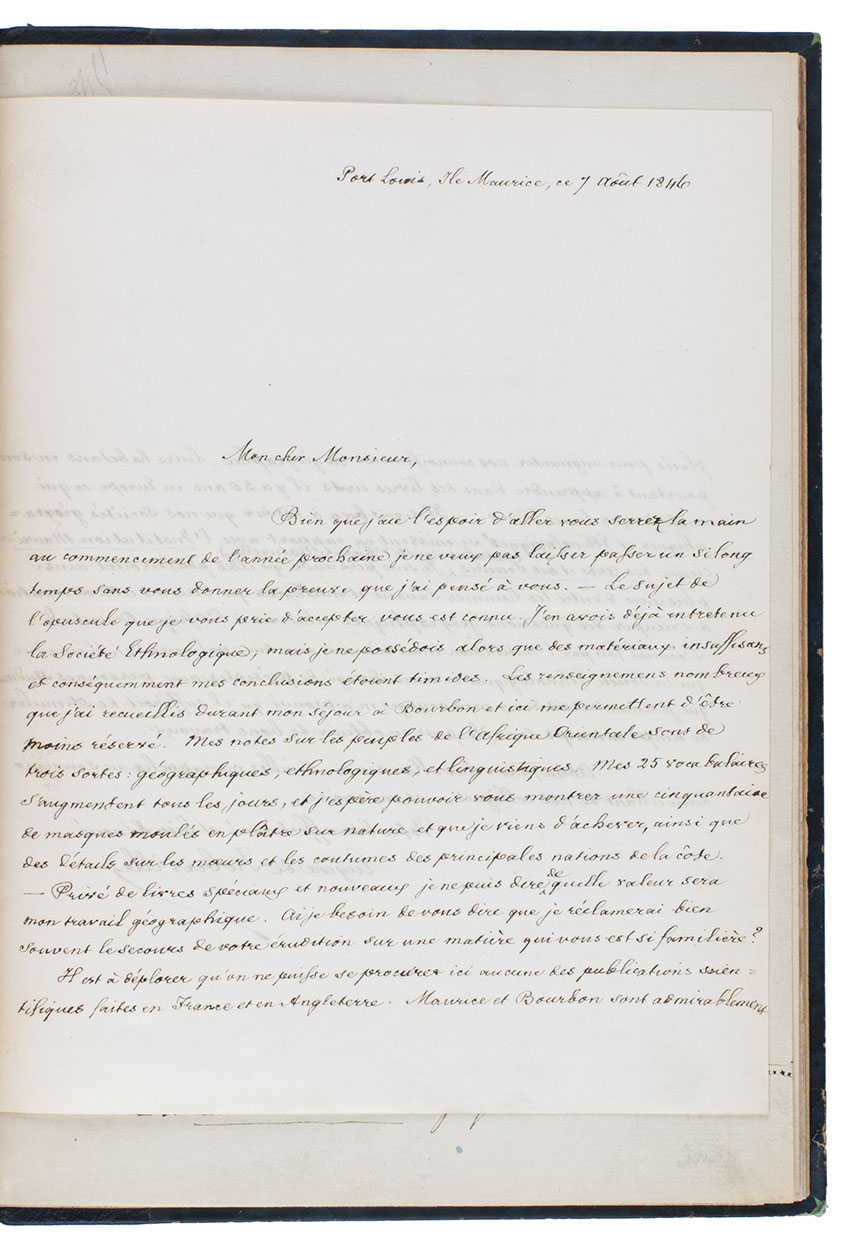 Port Louis, Ile Maurice, ce 7 Août 1846
Mon cher Monsieur,
Bien que j'aie l'espoir d'aller vous serrer la main
au commencement de l'année prochaine je ne veux pas laisser passer un si long
temps sans vous donner la preuve que j'ai pensé à vous. — Le sujet de
l'opuscule que je vous prie d'accepter vous est connu. J'en avois déjà entretenu
la Société Ethnologique, mais je ne possédois alors que des matériaux insuffisans
et conséquemment mes conclusions étoient timides. Les renseignemens nombreux
que j'ai recueillis durant mon séjour à Bourbon et ici me permettent d'être
moins réservé. Mes notes sur les peuples de l'Afrique Orientale sont de
trois sortes : géographiques, ethnologiques, et linguistiques. Mes 25 vocabulaires
s'augmentent tous les jours, et j'espère pouvoir vous montrer une cinquantaine
de masques moulés en plâtre sur nature et que je viens d'achever, ainsi que
des détails sur les mœurs et les coutumes des principales nations de la côte.
— Privé de livres spéciaux et nouveaux je ne puis dire de quelle valeur sera
mon travail géographique. Ai je besoin de vous dire que je réclamerai bien
souvent le secours de votre érudition sur une matière qui vous est si familière ?
Il est à déplorer qu'on ne puisse se procurer ici aucune des publications scien=
tifiques faites en France et en Angleterre. Maurice et Bourbon sont admirablement